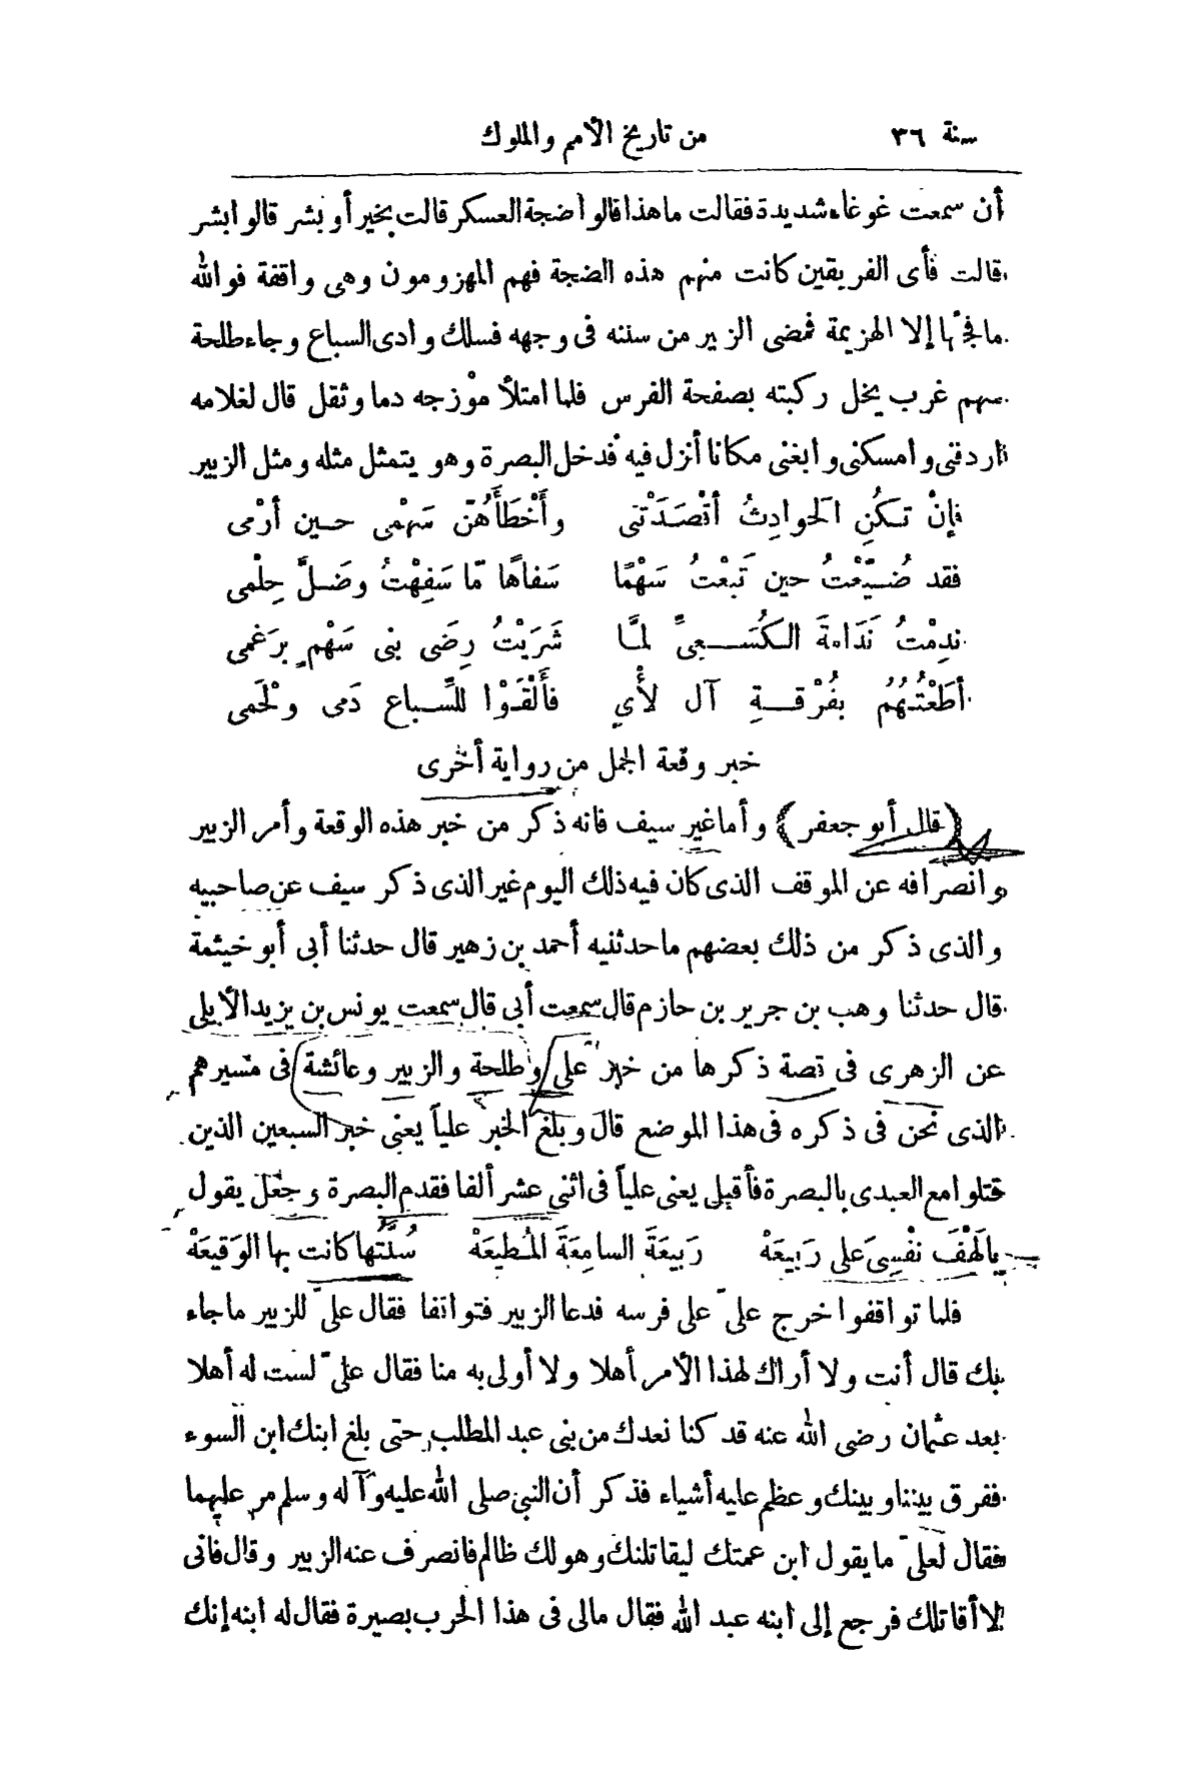 سنة ٣٦ من تاريخ الأمم والملوك
أن سمعت غوغاء شديدة فقالت ما هذا قالوا ضجة العسكر قالت بخير أو بشر قالوا بشر
قالت فأى الفريقين كانت منهم هذه الضجة فهم المهزومون وهى واقفة فوالله
ما فجئها إلا الهزيمة فمضى الزبير من سننه فى وجهه فسلك وادى السباع وجاء طلحة
سهم غرب يخل ركبته بصفحة الفرس فلما امتلأ موْزجه دما وثقل قال لغلامه
اردفنى وامسكنى وابغنى مكانا أنزل فيه فدخل البصرة وهو يتمثل مثله ومثل الزبير
فإنْ تـكُنِ الَحوادِثُ أقْصَدَتْنى وأَخْطَأَهُنّ سَهْمى حـين أرْمى
فقد ضُيّعْتُ حين تَبعْتُ سَهْمًا سَفاهًا مّا سَفِهْتُ وضَلَّ حِلْمى
ندِمْتُ نَدَامةَ الـكُسَـعِىِّ لمـَّا شَرَيْتُ رِضَى بنى سَهْمٍ برَغمى
أطَعْتُهُمُ بفُرْقـةِ آل لأْيٍ فأَلْقَوْا للسِّباع دَمى ولْحَمى
خبر وقعة الجمل من رواية أخرى
(قال أبو جعفر) وأما غير سيف فانه ذكر من خبر هذه الوقعة وأمر الزبير
وانصرافه عن الموقف الذى كان فيه ذلك اليوم غير الذى ذكر سيف عن صاحبيه
والذى ذكر من ذلك بعضهم ما حدثنيه أحمد بن زهير قال حدثنا أبى أبو خيثمة
قال حدثنا وهب بن جرير بن حازم قال سمعت أبى قال سمعت يونس بن يزيد الأيلى
عن الزهرى فى قصة ذكرها من خبر علىّ وطلحة والزبير وعائشة فى مسيرهم
الذى نحن فى ذكره فى هذا الموضع قال وبلغ الخبر علياً يعنى خبر السبعين الذين
قتلوا مع العبدى بالبصرة فأقبل يعنى علياً فى اثنى عشر ألفا فقدم البصرة وجعل يقول
يالَهْفَ نفْسِىَ على رَبيعَهْ رَبيعَةَ السامِعَةَ المُطيعَهْ سُنَّتُها كانت بها الوَقيعَهْ
فلما تواقفوا خرج علىّ على فرسه فدعا الزبير فتواقفا فقال علىّ للزبير ما جاء
بك قال أنت ولا أراك لهذا الأمر أهلا ولا أولى به منا فقال علىّ لست له أهلا
بعد عثمان رضى الله عنه قد كنا نعدك من بنى عبد المطلب حتى بلغ ابنك ابن السوء
ففرق بيننا وبينك وعظم عليه أشياء فذكر أن النبى صلى الله عليه وآله وسلم مر عليهما
فقال لعلىّ ما يقول ابن عمتك ليقاتلنك وهو لك ظالم فانصرف عنه الزبير وقال فانى
لا أقاتلك فرجع إلى ابنه عبد الله فقال مالى فى هذا الحرب بصيرة فقال له ابنه إنك